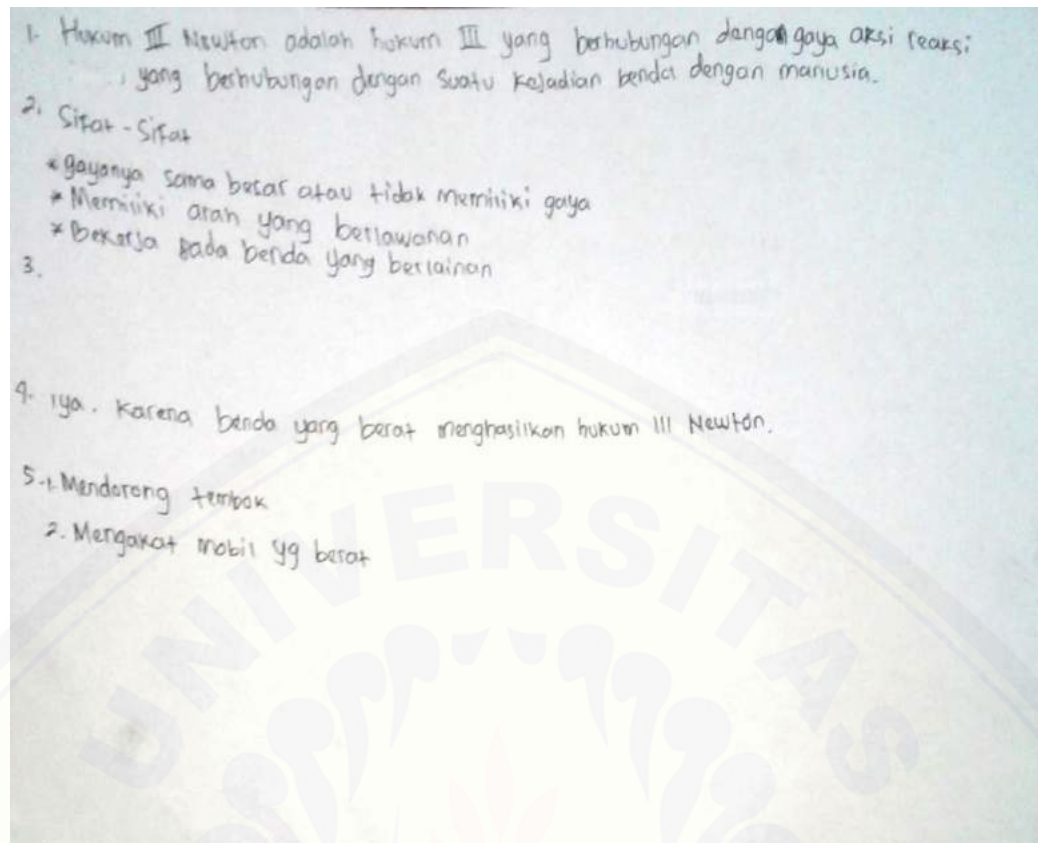 1. Hukum III Newton adalah hukum III yang berhubungan dengan gaya aksi reaksi
yang berhubungan dengan suatu kejadian benda dengan manusia.
2. Sifat-Sifat
* gayanya sama besar atau tidak memiliki gaya
* Memiliki arah yang berlawanan
* Bekerja pada benda yang berlainan
3.
4. iya. Karena benda yang berat menghasilkan hukum III Newton.
5. 1. Mendorong tembok
2. Mengakat mobil yg berat
UNIVERSITAS